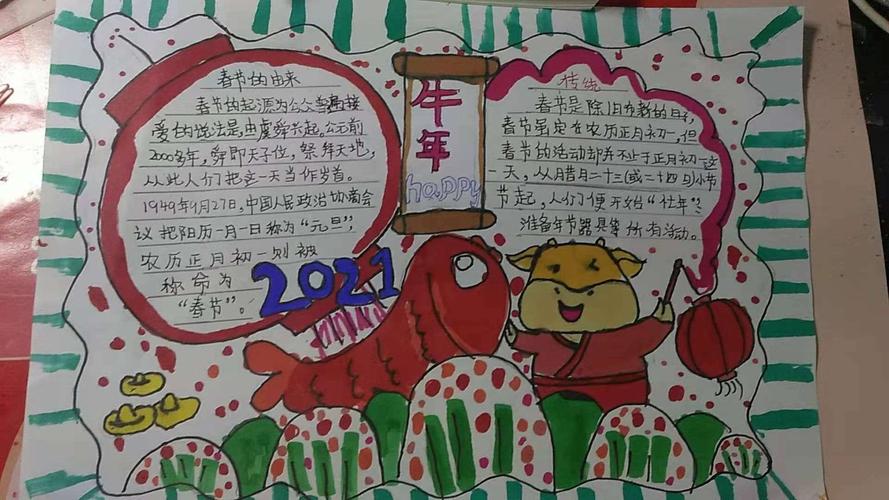 春节的由来
春节的起源为公众普遍接
受的说法是由虞舜兴起,公元前
2000多年,舜即天子位,祭拜天地,
从此人们把这一天当作岁首。
1949年9月27日,中国人民政治协商会
议把阳历一月一日称为“元旦”,
农历正月初一则被
称命为
“春节”。
2021
牛年
happy
传统
春节是除旧布新的日子,
春节虽定在农历正月初一,但
春节的活动却并不止于正月初一这
一天,从腊月二十三(或二十四日)小
节起,人们便开始“忙年”:
准备年节器具等所有活动。